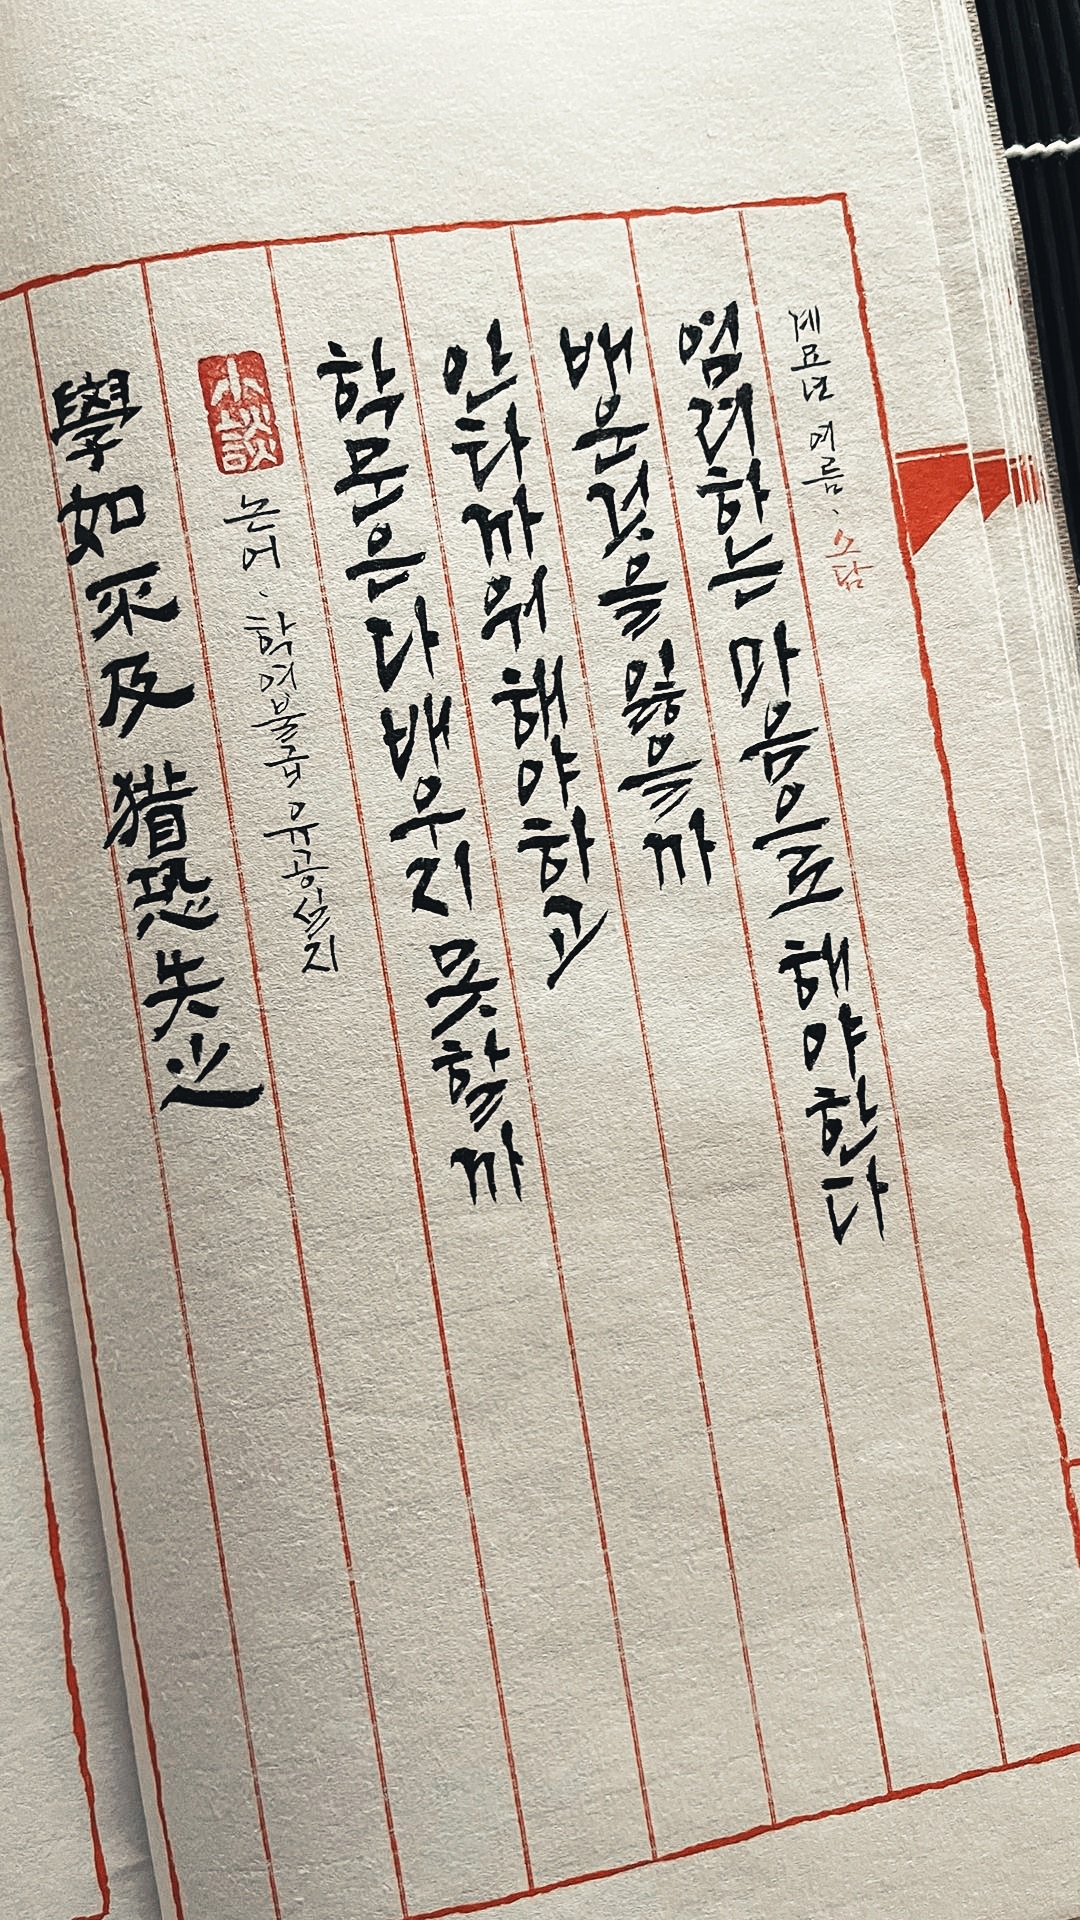 學如不及 猶恐失之
小談
논어. 학여불급 유공실지
학문은 다 배우지 못할까
안타까워 해야 하고
배운것을 잃을까
염려하는 마음으로 해야한다
계묘년 여름. 소담